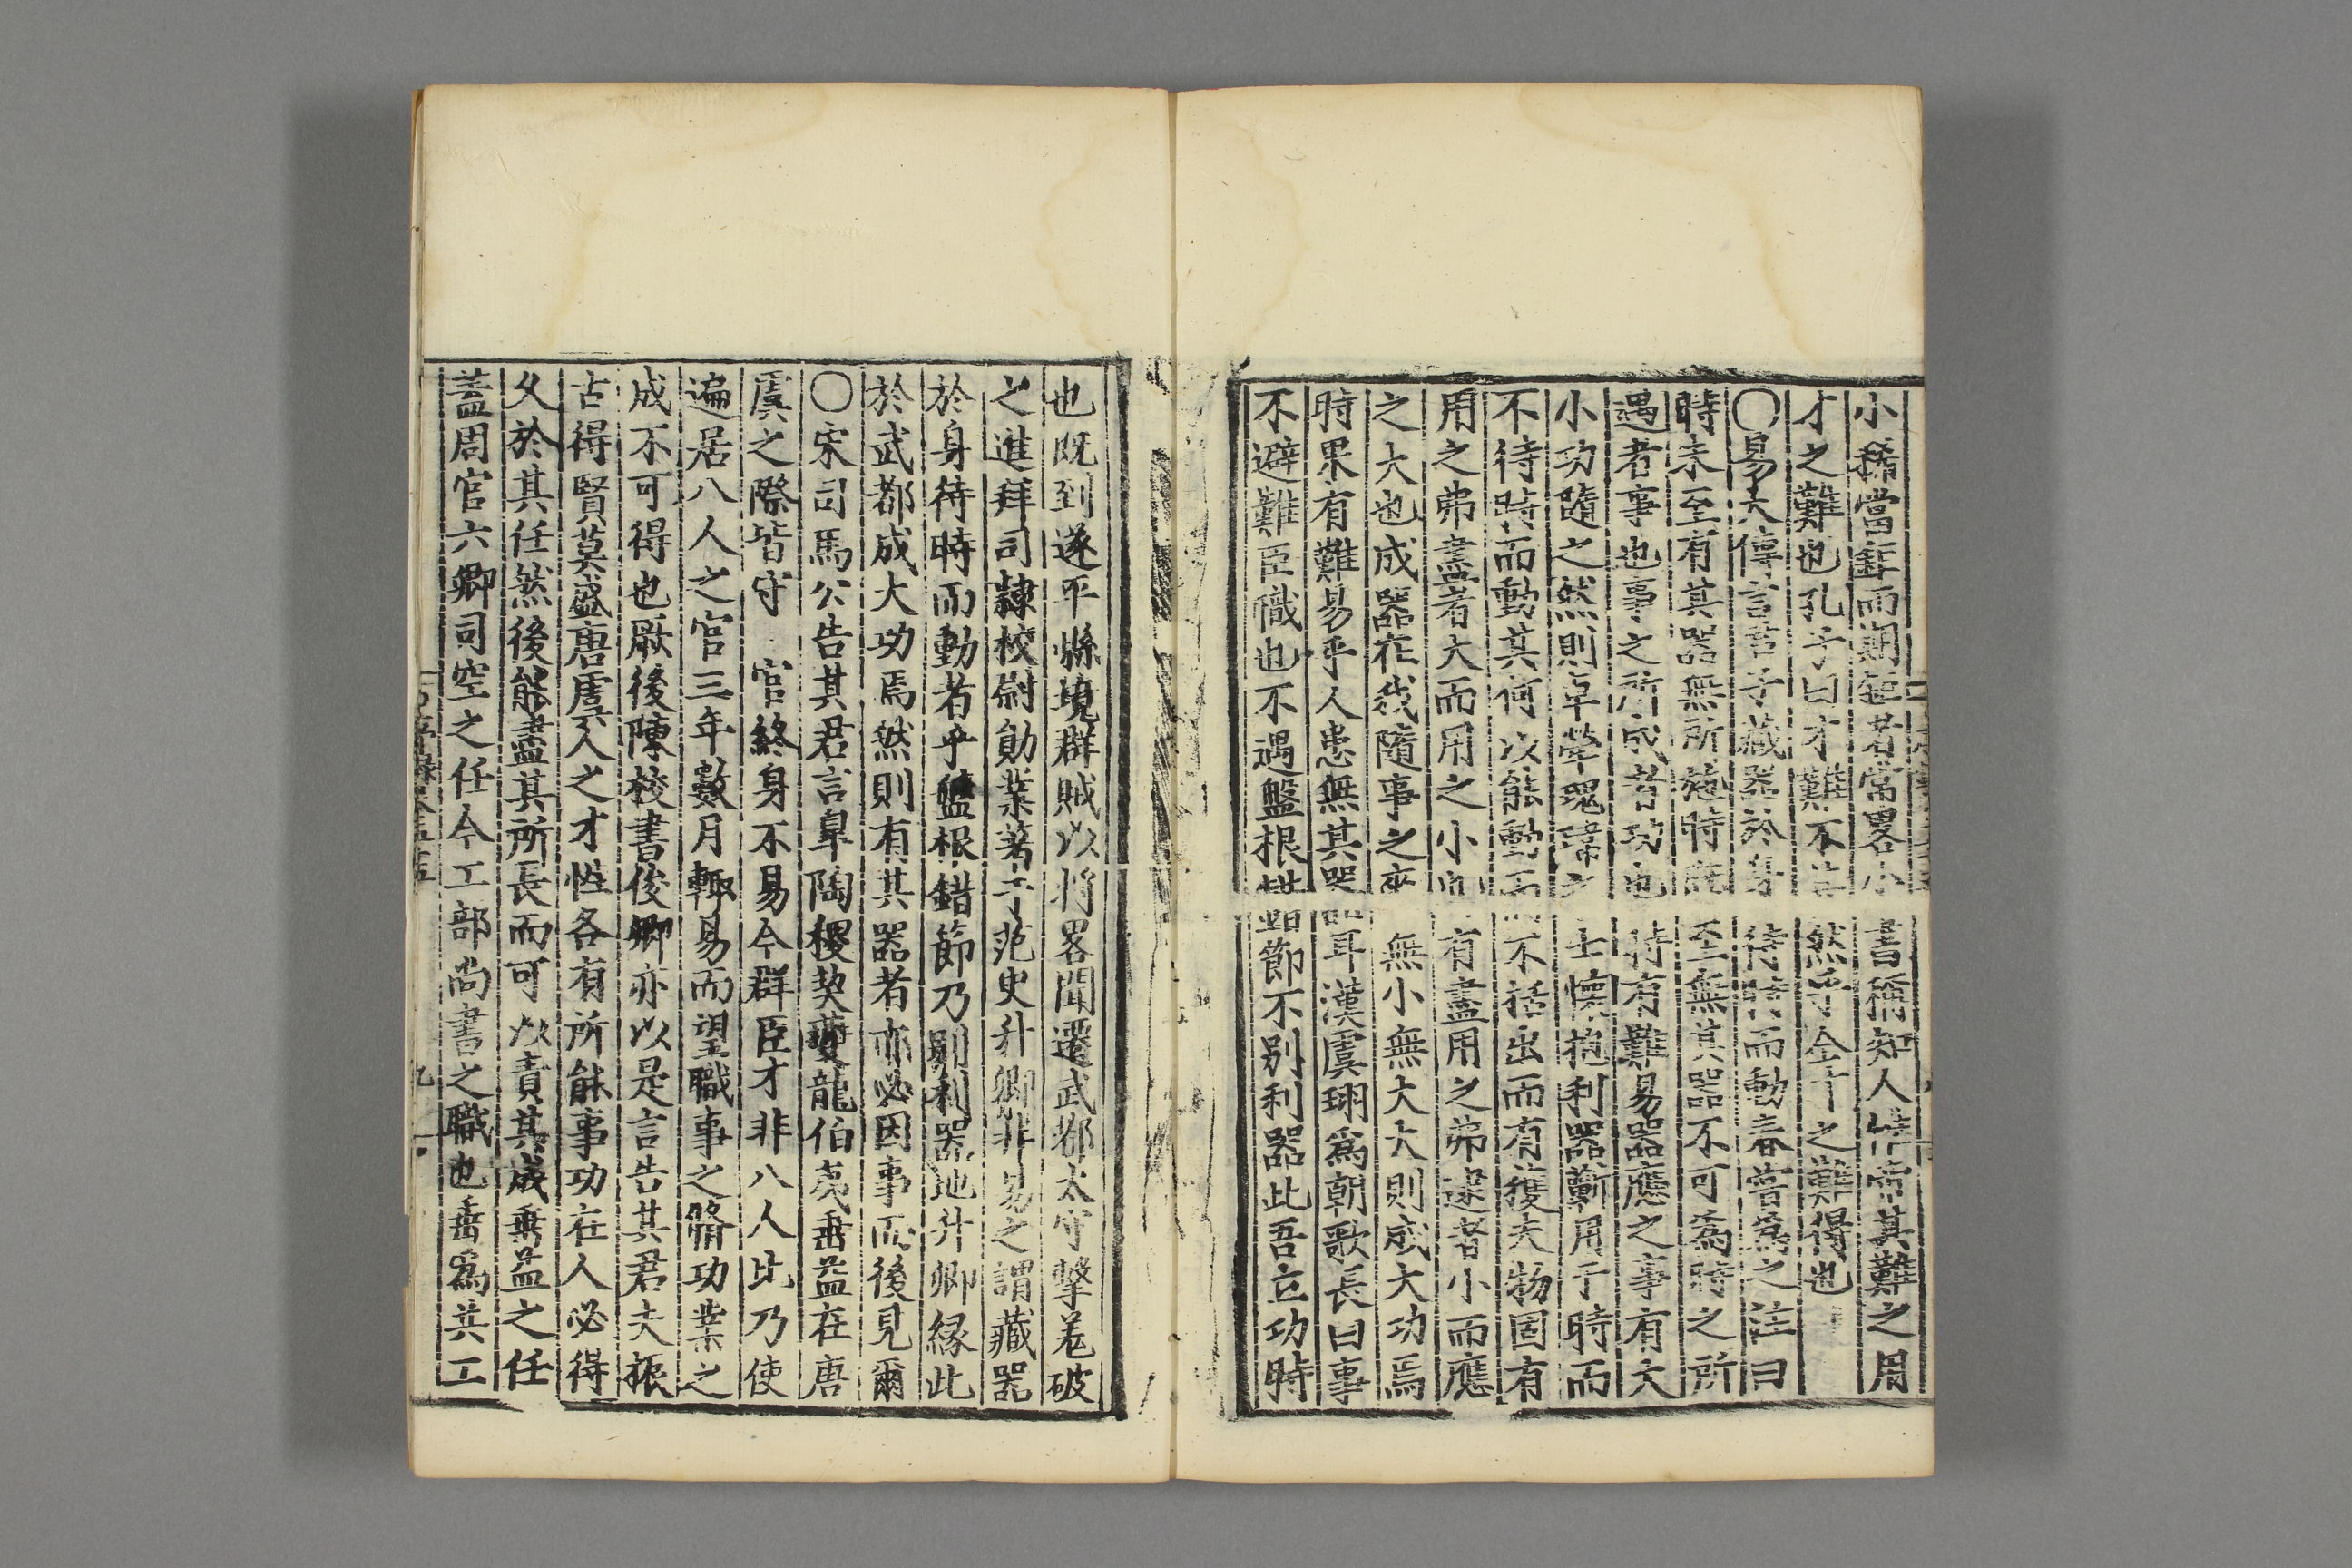 小稀當鉦而翺鉦若當畧小書稱知人惟帝其難之用
才之難也孔子曰才難不其然乎全才之難得也
〇易大傳言君子藏器於身待時而動春嘗爲之注曰
時未至有其器無所施時既至無其器不可爲時之所
遇者事也事之所成者功也時有難易器應之事有大
小功隨之然則卓犖瑰瑋之士懷抱利器蘄用于時而
不待時而動其何以能動而不括出而有獲夫物固有
用之弗盡者大而用之小也有盡用之弗逮者小而應
之大也成器在我隨事之來無小無大大則成大功焉
時果有難易乎人患無其器耳漢虞詡爲朝歌長曰事
不避難臣職也不遇盤根錯節不别利器此吾立功時
也既到遂平縣境群賊以將畧聞遷武都太守擊羌破
之進拜司隸校尉勛業著于范史升卿非易之謂藏器
於身待時而動者乎盤根錯節乃别利器地升卿縁此
於武都成大功焉然則有其器者亦必因事而後見爾
〇宋司馬公告其君言臯陶稷契夔龍伯夷垂益在唐
虞之際皆守 官終身不易今群臣才非八人比乃使
遍居八人之官三年數月輒易而望職事之脩功業之
成不可得也厥後陳校書俊卿亦以是言告其君夫振
古得賢莫盛唐虞人之才性各有所能事功在人必得
久於其任然後能盡其所長而可以責其成垂益之任
蓋周官六卿司空之任今工部尚書之職也垂爲共工